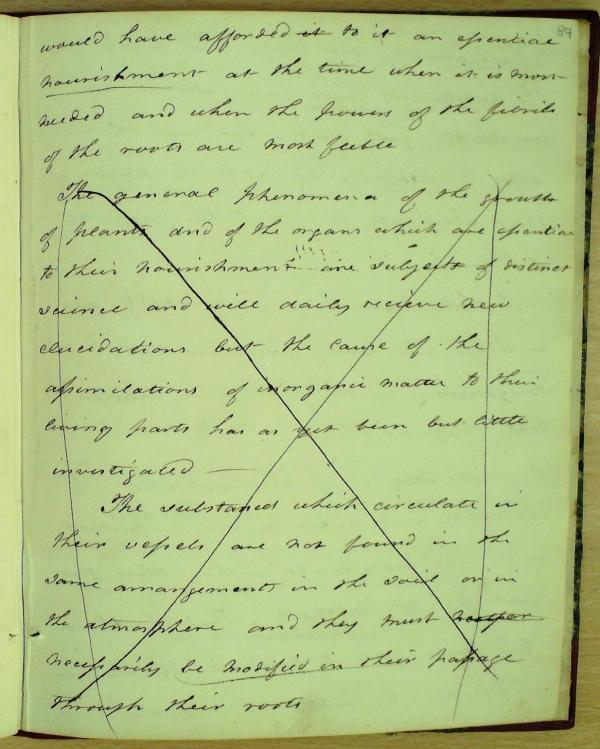 89
would have afforded it to it an essential
nourishment at the time when it is most
needed and when the powers of the fibrils
of the roots are most feeble
The general phenomena of the growth
of plants and of the organs which are essential
to their nourishment are subjects of distinct
science and will daily recieve new
elucidations but the cause of the
assimilations of inorganic matter to their
living parts has as yet been but little
investigated —
The substances which circulate in
their vessels are not found in the
same arrangements in the soil or in
the atmosphere and they must
necessarily be modified in their passage
through their roots